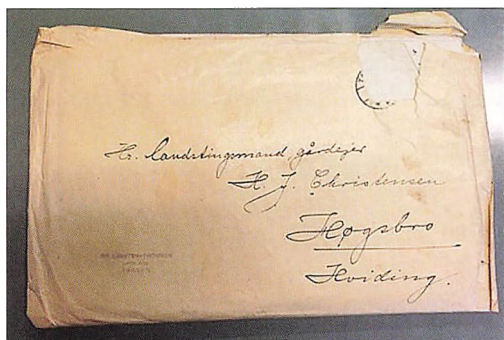 Hr. Landstingsmand, gårdejer
H. J. Christensen
Høgsbro
Hviding.